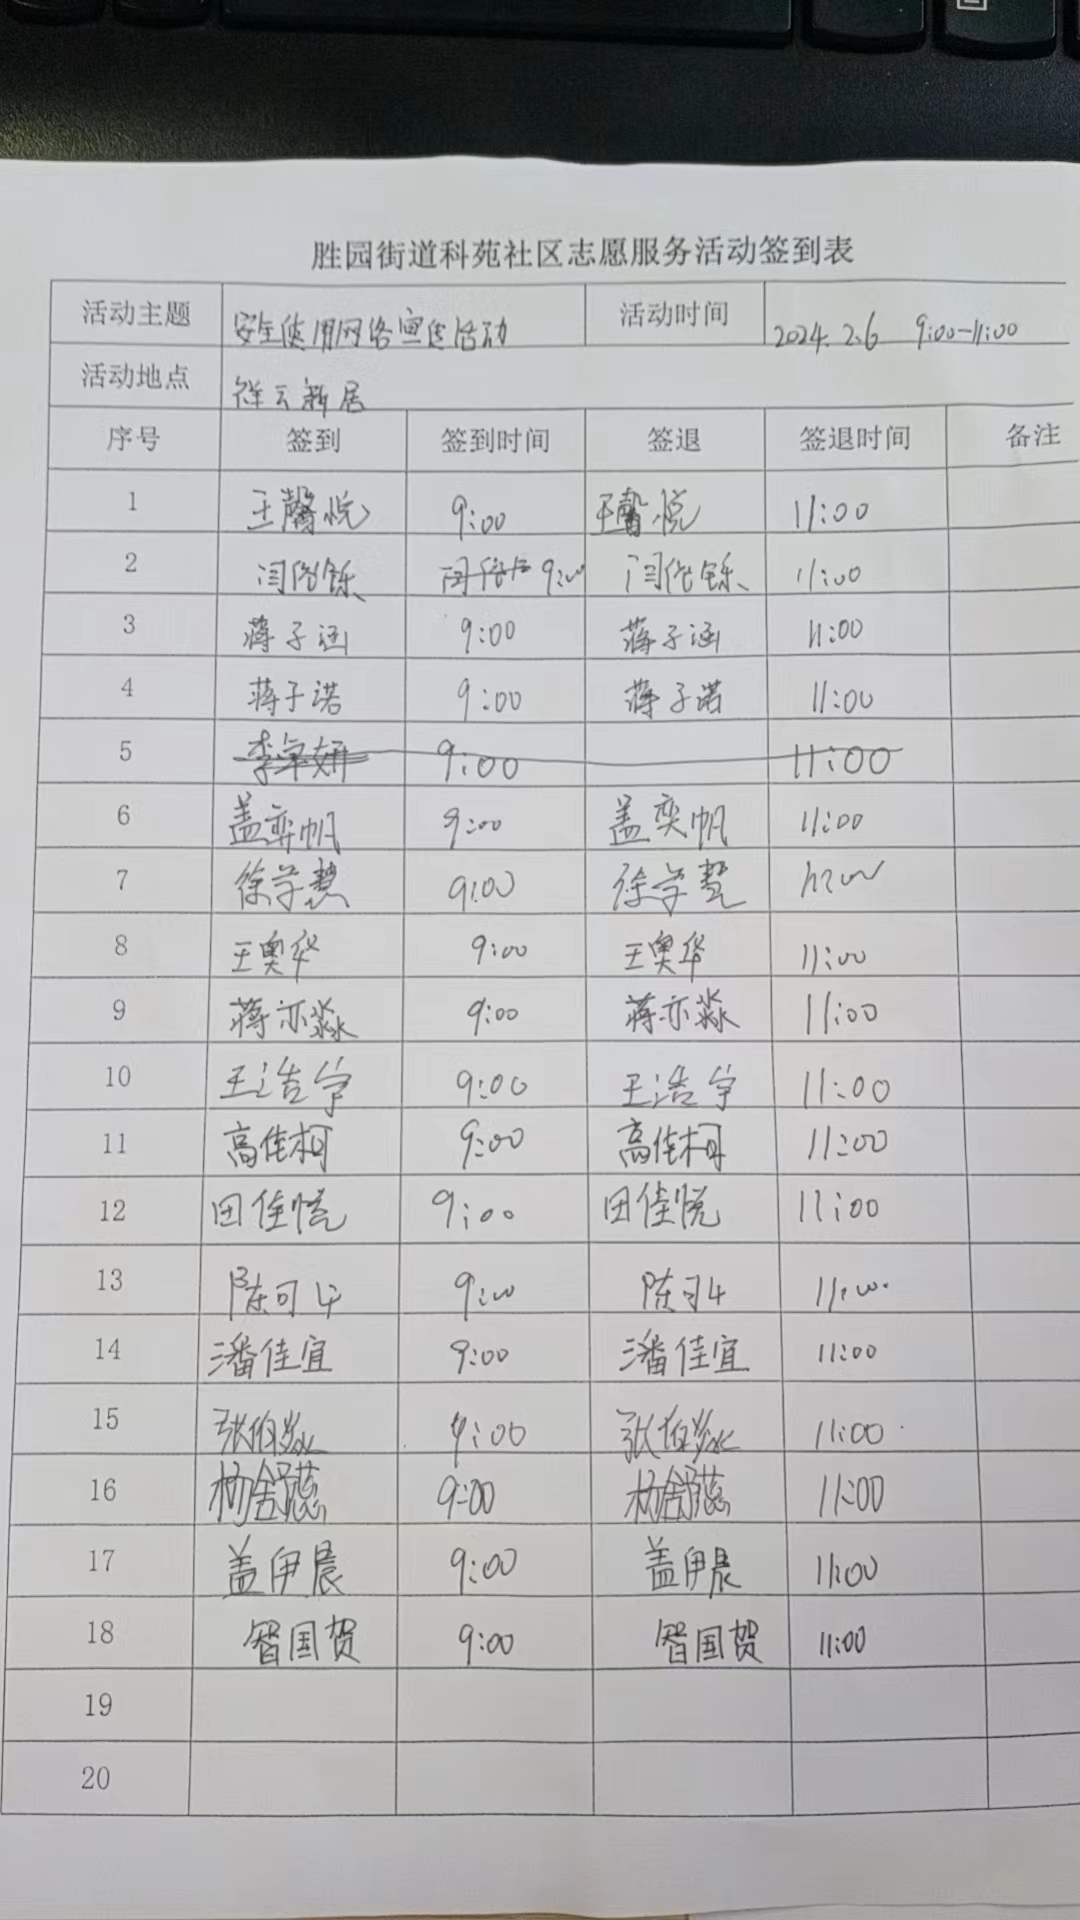 胜园街道科苑社区志愿服务活动签到表
活动主题 安全使用网络宣传活动 活动时间 2024.2.6 9:00-11:00
活动地点 祥云新居
序号 签到 签到时间 签退 签退时间 备注
1 王馨悦 9:00 王馨悦 11:00
2 闫俗铄 9:00 闫俗铄 11:00
3 蒋子涵 9:00 蒋子涵 11:00
4 蒋子诺 9:00 蒋子诺 11:00
5 9:00 11:00
6 盖奕帆 9:00 盖奕帆 11:00
7 徐学慧 9:00 徐学慧
8 王奥华 9:00 王奥华 11:00
9 蒋亦淼 9:00 蒋亦淼 11:00
10 王浩宇 9:00 王浩宇 11:00
11 高佳柯 9:00 高佳柯 11:00
12 田佳悦 9:00 田佳悦 11:00
13 9:00 11:00
14 潘佳宜 9:00 潘佳宜 11:00
15 9:00 11:00
16 杨舒蕊 9:00 杨舒蕊 11:00
17 盖伊晨 9:00 盖伊晨 11:00
18 智国贺 9:00 智国贺 11:00
19
20